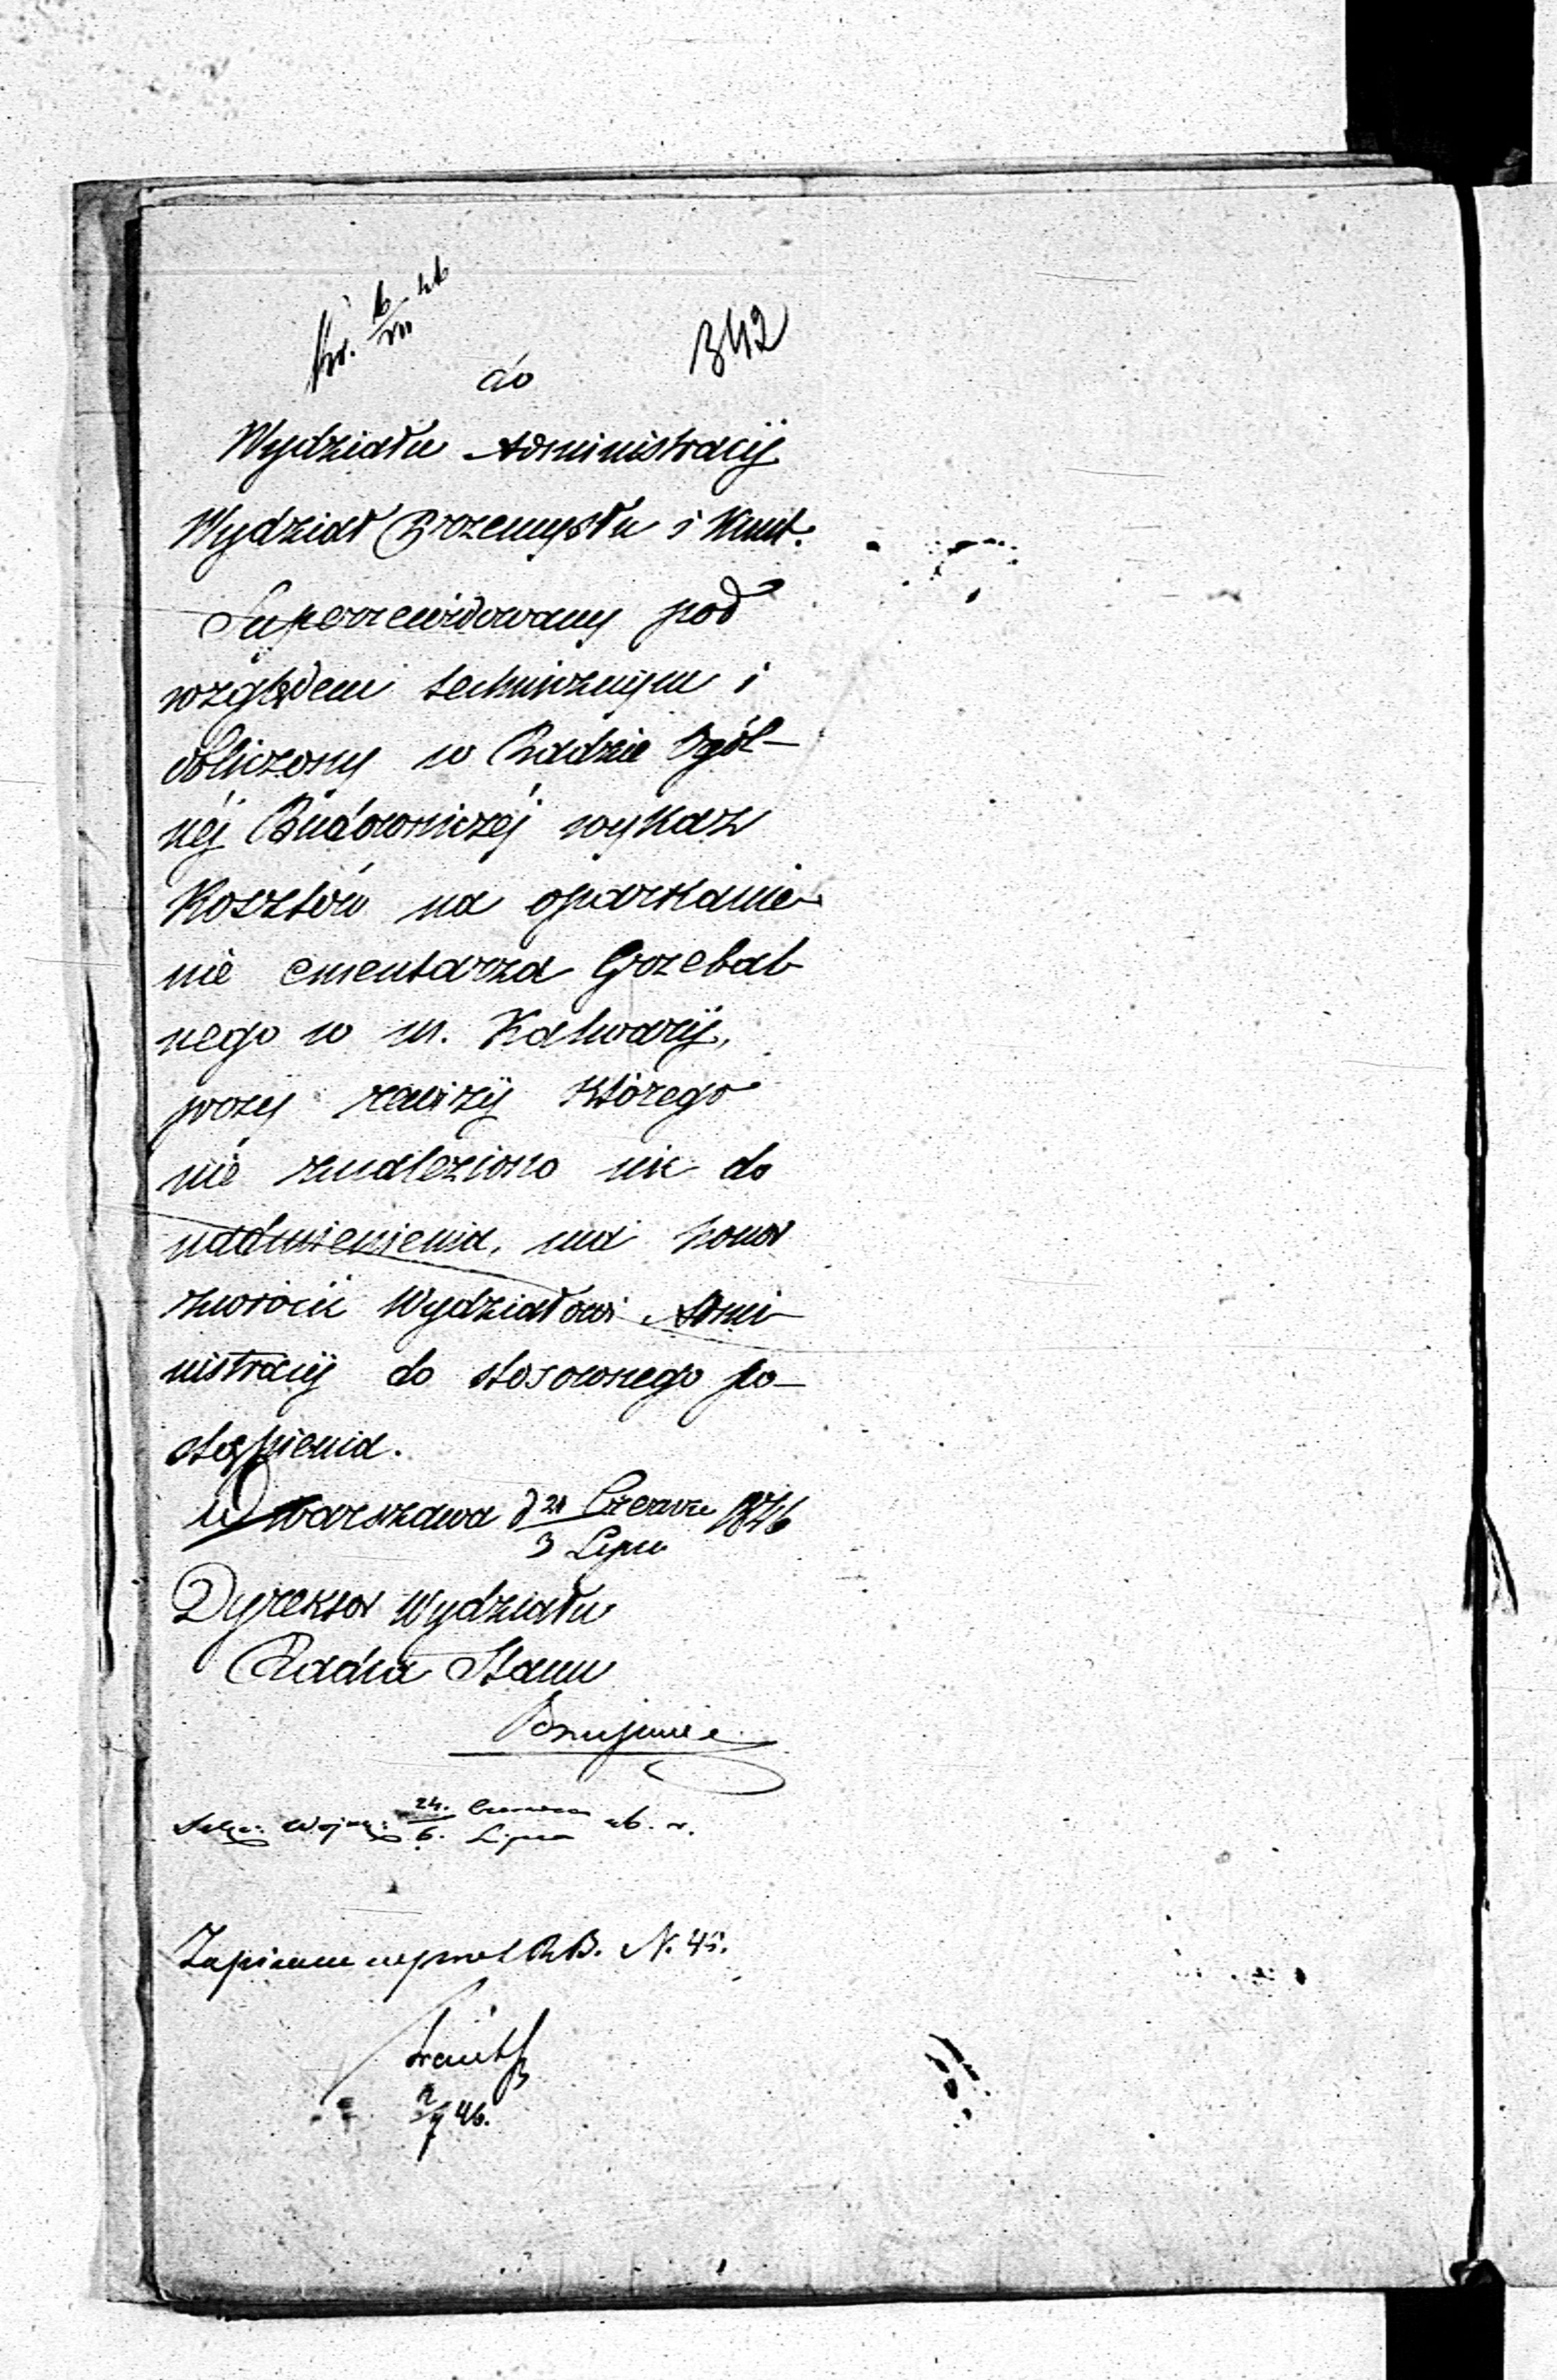 342
do
Wydziału Administracyi
Wydział Przemysłu i Kunt.
Superrewidowany pod
względem technicznym i
obliczony w Radzie Ogól-
néj Budowniczéj wykaz
Kosztów na oparkanie-
nie cmentarza Grzebal-
nego w m. Kalwaryi,
przy rewizyi którego
nie znaleziono nic do
nadmienienia, ma honor
zwrócić Wydziałowi Admi-
nistracyi do stosownego po-
stąpienia.
w Warszawa d 21 Czerwca 1846
3 Lipca
Dyrektor Wydziału
Radca Stanu
24. Czerwca
6. Lipca 46. r.
Zapisane R.B. N. 45.
46.